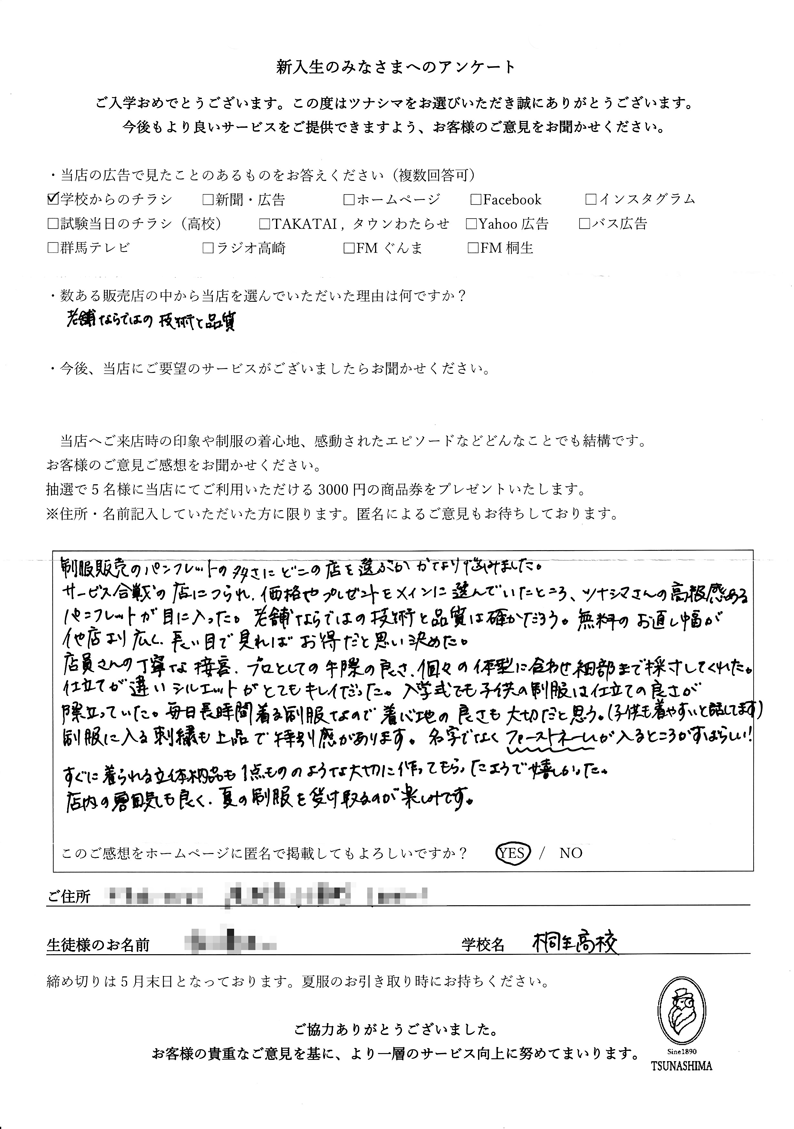 新入生のみなさまへのアンケート
ご入学おめでとうございます。この度はツナシマをお選びいただき誠にありがとうございます。
今後もより良いサービスをご提供できますよう、お客様のご意見をお聞かせください。
・当店の広告で見たことのあるものをお答えください（複数回答可）
☑学校からのチラシ □新聞・広告 □ホームページ □Facebook □インスタグラム
□試験当日のチラシ（高校） □TAKATAI , タウンわたらせ □Yahoo 広告 □バス広告
□群馬テレビ □ラジオ高崎 □FM ぐんま □FM 桐生
・数ある販売店の中から当店を選んでいただいた理由は何ですか？
老舗ならではの技術と品質
・今後、当店にご要望のサービスがございましたらお聞かせください。
当店へご来店時の印象や制服の着心地、感動されたエピソードなどどんなことでも結構です。
お客様のご意見ご感想をお聞かせください。
抽選で5名様に当店にてご利用いただける 3000 円の商品券をプレゼントいたします。
※住所・名前記入していただいた方に限ります。匿名によるご意見もお待ちしております。
制服販売のパンフレットの多さにどこの店を選ぶか かなり悩みました。
サービス合戦の店につられ、価格やプレゼントをメインに選んでいたところ、ツナシマさんの高級感ある
パンフレットが目に入った。老舗ならではの技術と品質は確かだろう。無料のお直し幅が
他店より広く、長い目で見ればお得だと思い決めた。
店員さんの丁寧な接客、プロとしての手際の良さ、個々の体型に合わせ細部まで採寸してくれた。
仕立てが違いシルエットがとてもキレイだった。入学式でも子供の制服は仕立ての良さが
際立っていた。毎日長時間着る制服なので着心地の良さも大切だと思う。(子供も着やすいと話してます)
制服に入る刺繍も上品で特別感があります。名字でなくファーストネームが入るところがすばらしい!
すぐに着られる立体納品も1点もののような大切に作ってもらったようで嬉しかった。
店内の雰囲気も良く、夏の制服を受け取るのが楽しみです。
このご感想をホームページに匿名で掲載してもよろしいですか？ YES / NO
ご住所
生徒様のお名前 学校名 桐生高校
締め切りは5月末日となっております。夏服のお引き取り時にお持ちください。
ご協力ありがとうございました。
お客様の貴重なご意見を基に、より一層のサービス向上に努めてまいります。
Sine1890
TSUNASHIMA